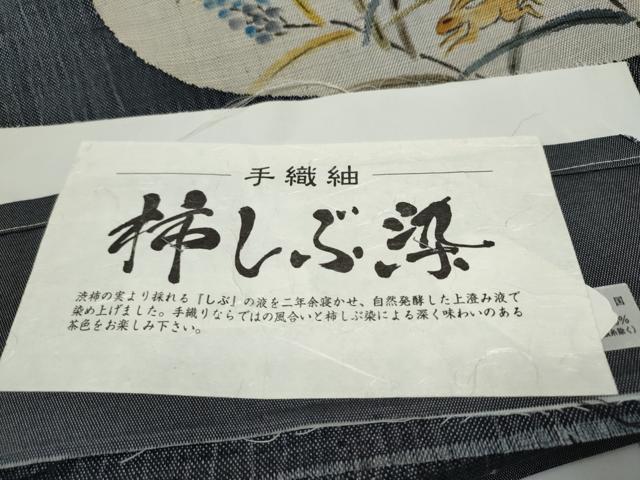 手織紬
柿しぶ染
渋柿の実より採れる『しぶ』の液を二年余寝かせ、自然発酵した上澄み液で
染め上げました。手織りならではの風合いと柿しぶ染による深く味わいのある
茶色をお楽しみ下さい。
国
%
除く)